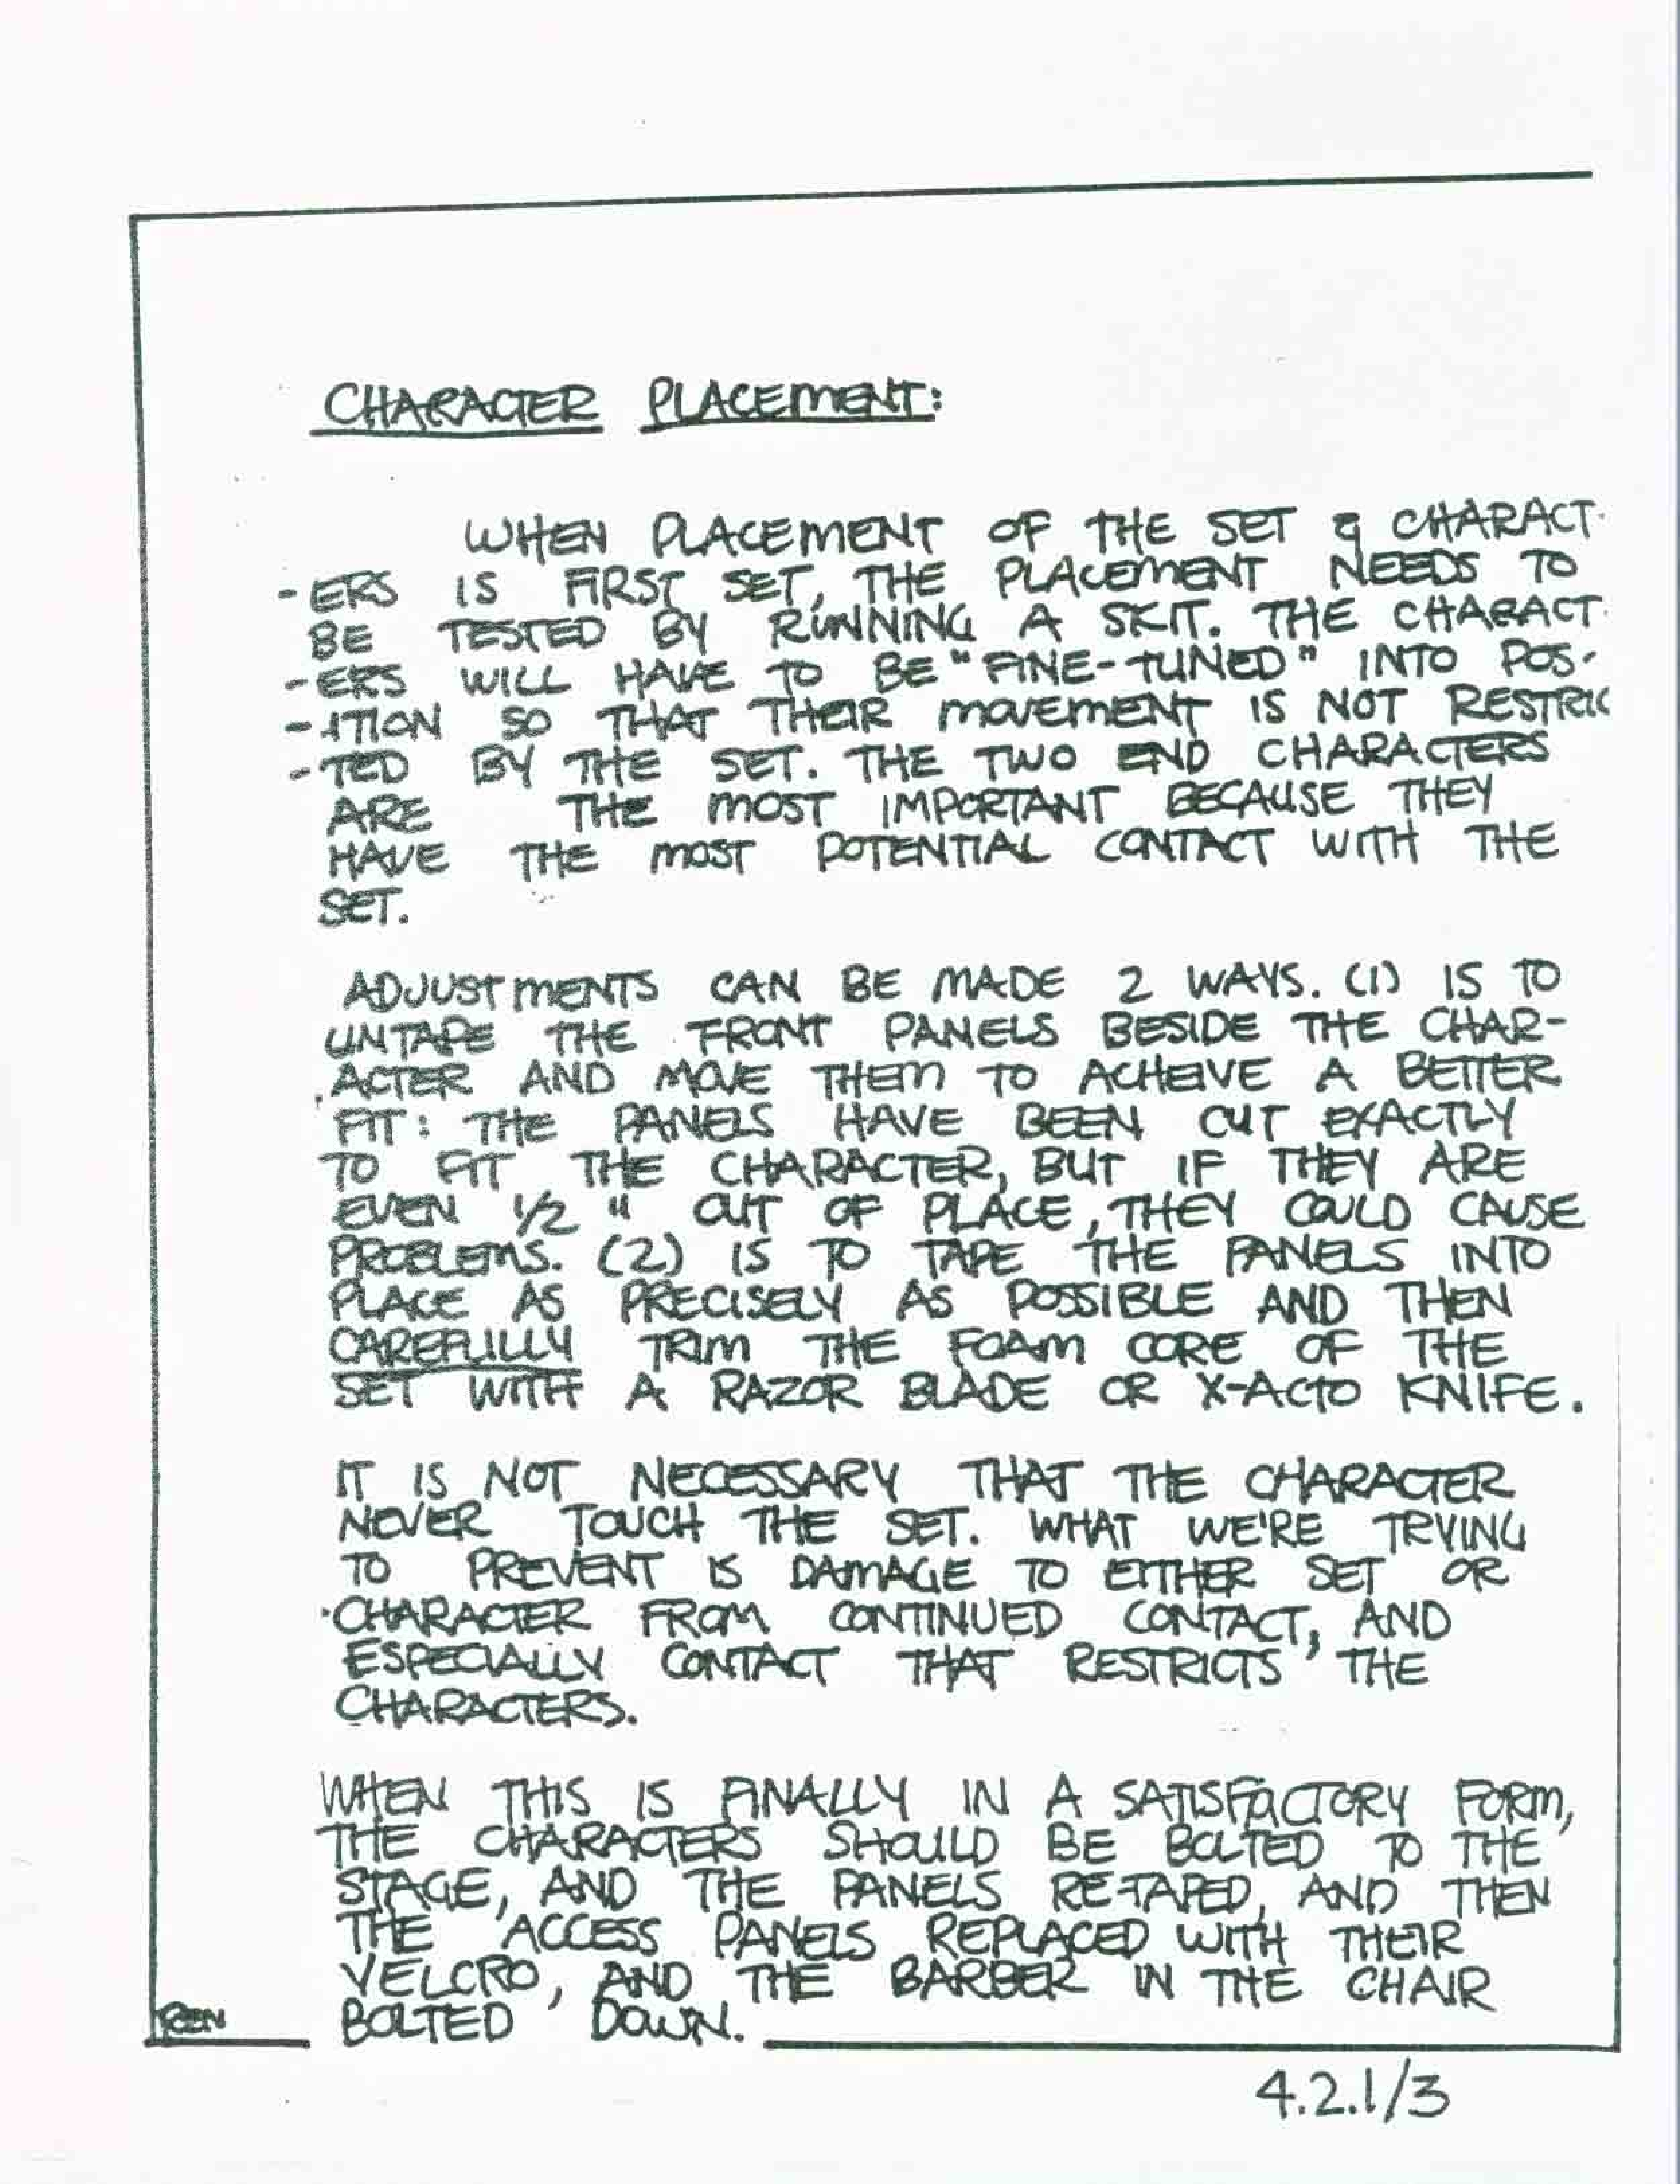 CHARACTER PLACEMENT:
WHEN PLACEMENT OF THE SET & CHARACT-
-ERS IS FIRST SET, THE PLACEMENT NEEDS TO
BE TESTED BY RUNNING A SKIT. THE CHARACT-
-ERS WILL HAVE TO BE "FINE-TUNED" INTO POS-
-ITION SO THAT THEIR MOVEMENT IS NOT RESTRIC
-TED BY THE SET. THE TWO END CHARACTERS
ARE THE MOST IMPORTANT BECAUSE THEY
HAVE THE MOST POTENTIAL CONTACT WITH THE
SET.
ADJUSTMENTS CAN BE MADE 2 WAYS. (1) IS TO
UNTAPE THE FRONT PANELS BESIDE THE CHAR-
ACTER AND MOVE THEM TO ACHEIVE A BETTER
FIT: THE PANELS HAVE BEEN CUT EXACTLY
TO FIT THE CHARACTER, BUT IF THEY ARE
EVEN 1/2 " OUT OF PLACE, THEY COULD CAUSE
PROBLEMS. (2) IS TO TAPE THE PANELS INTO
PLACE AS PRECISELY AS POSSIBLE AND THEN
CAREFULLY TRIM THE FOAM CORE OF THE
SET WITH A RAZOR BLADE OR X-ACTO KNIFE.
IT IS NOT NECESSARY THAT THE CHARACTER
NEVER TOUCH THE SET. WHAT WE'RE TRYING
TO PREVENT IS DAMAGE TO EITHER SET OR
CHARACTER FROM CONTINUED CONTACT, AND
ESPECIALLY CONTACT THAT RESTRICTS THE
CHARACTERS.
WHEN THIS IS FINALLY IN A SATISFACTORY FORM,
THE CHARACTERS SHOULD BE BOLTED TO THE
STAGE, AND THE PANELS RE-TAPED, AND THEN
THE ACCESS PANELS REPLACED WITH THEIR
VELCRO, AND THE BARBER IN THE CHAIR
BOLTED DOWN.
4.2.1/3